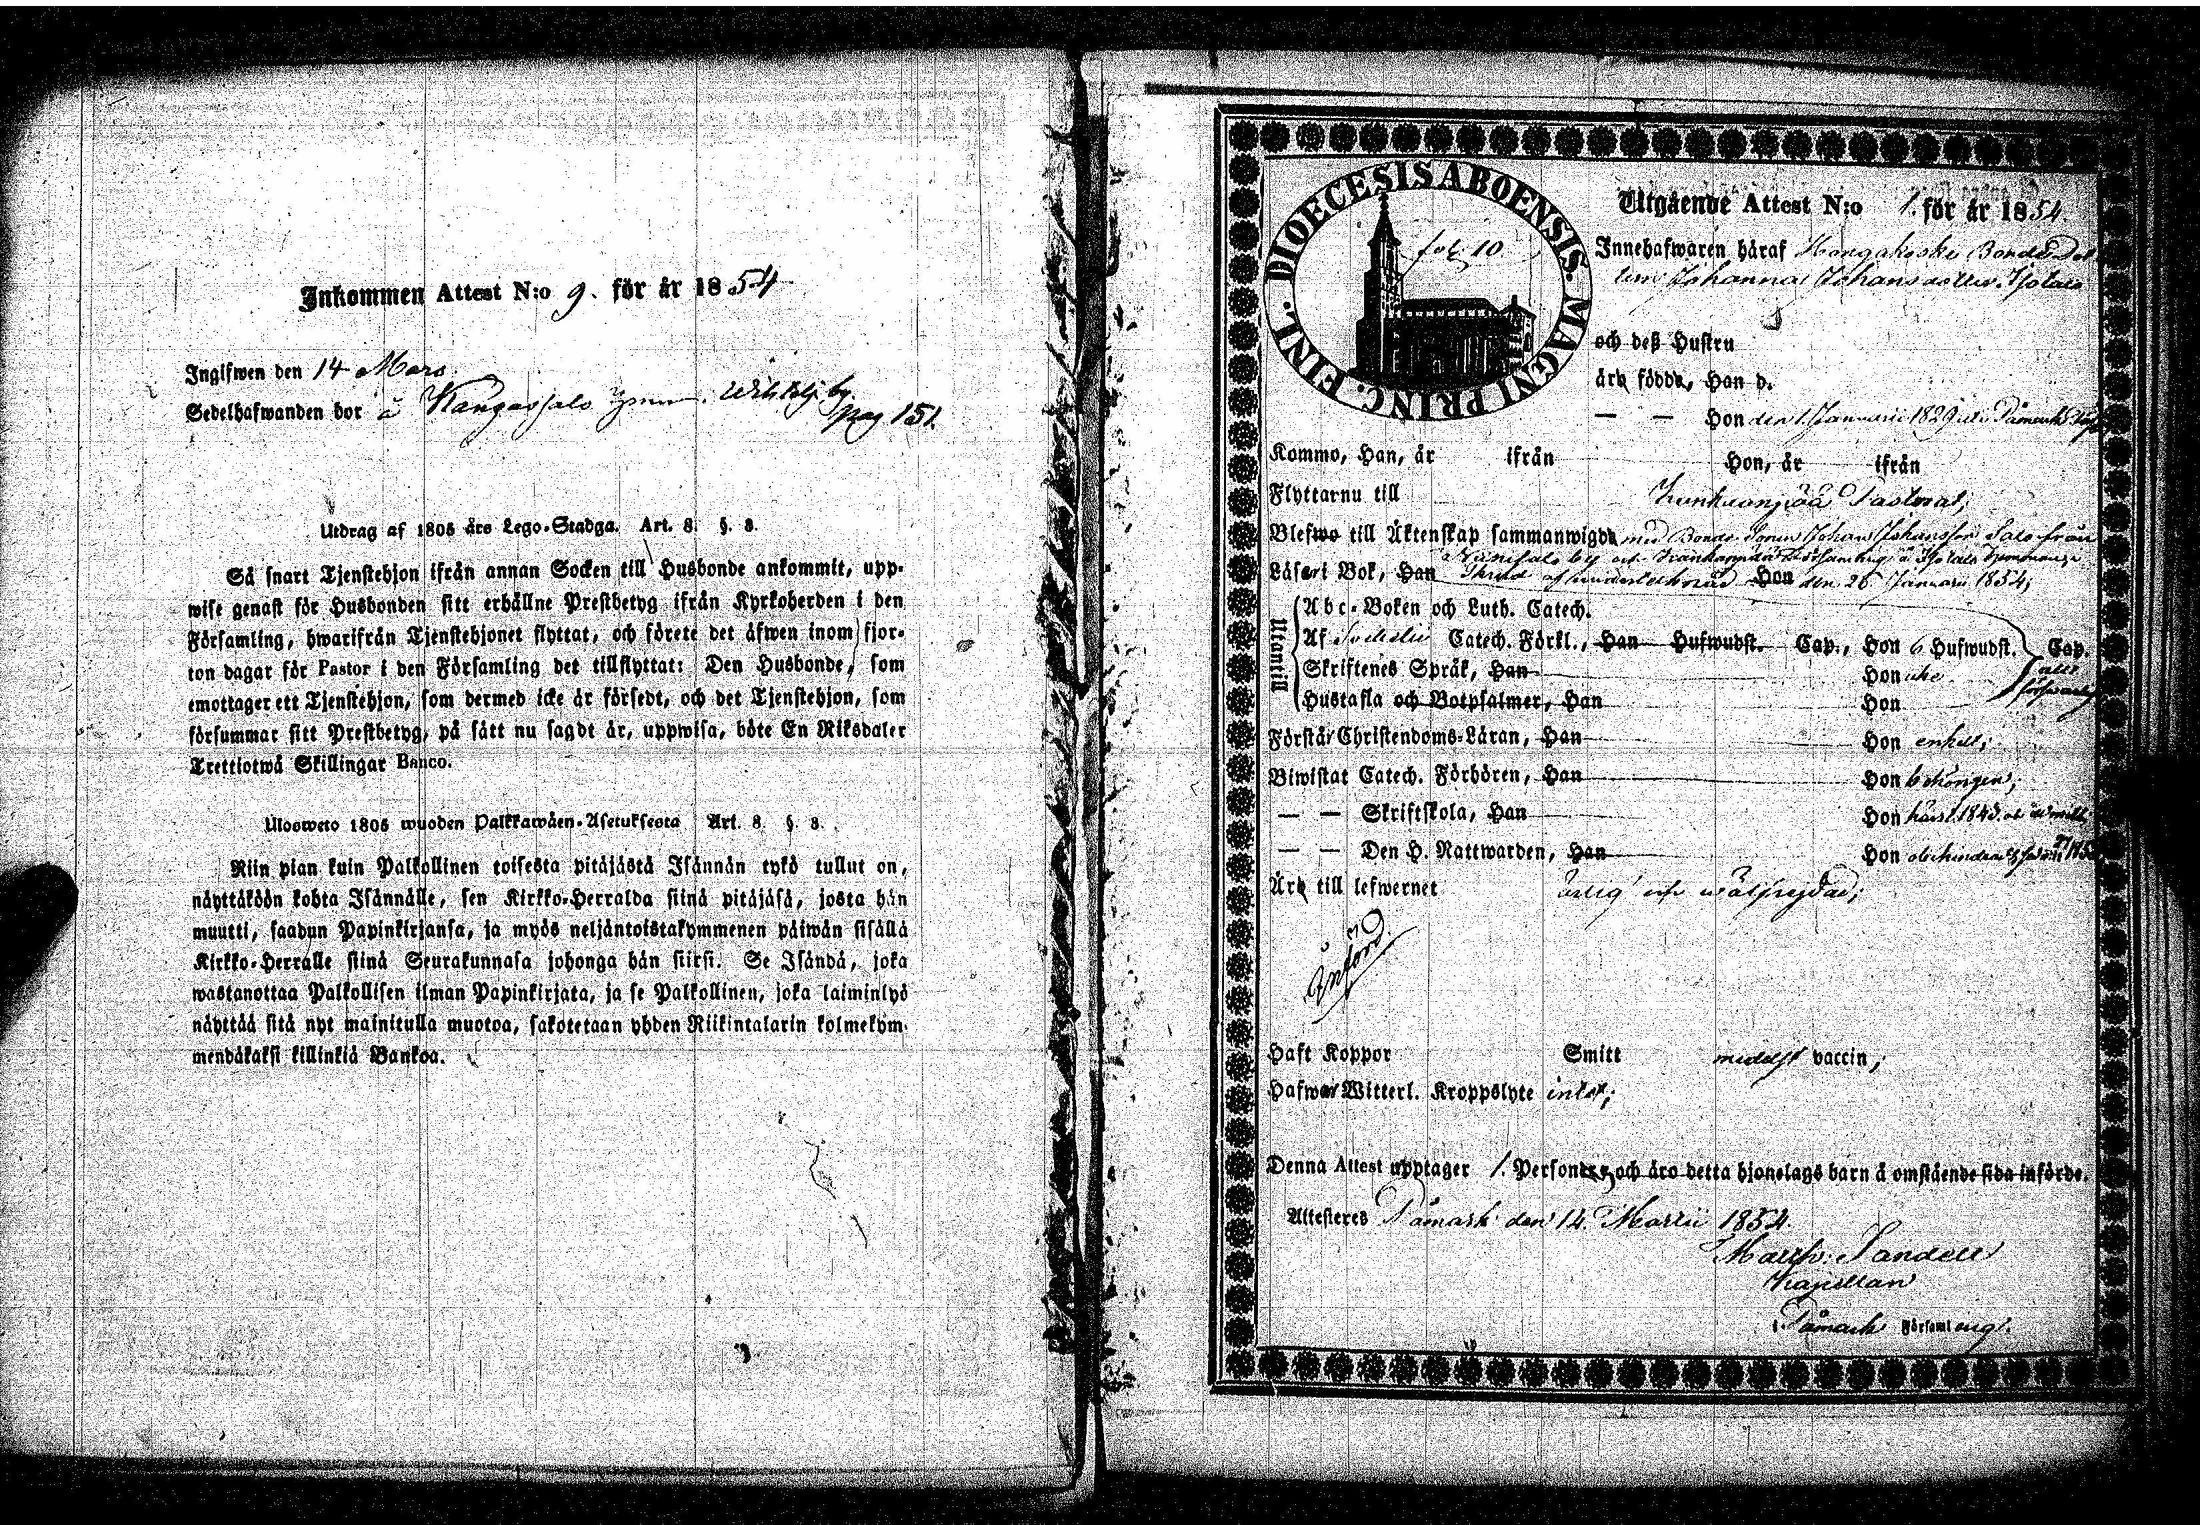 Inkommen Attest N:o 9. för år 1854
Ingifwen den 14 Mars
Sedelhafwanden bor å Kangassalo by. pag 151.
Utdrag af 1805 års Lego-Stadga. Art. 8. §. 8.
Så snart Tjenstehjon ifrån annan Socken till Husbonde ankommit, upp-
wise genast för Husbonden sitt erhållne Prestbetyg ifrån Kyrkoherden i den
Församling, hwarifrån Tjenstehjonet flyttat, och förete det äfwen inom fjor-
ton dagar för Pastor i den Församling det tillflyttat: Den Husbonde, som
emottager ett Tjenstehjon, som dermed icke är försedt, och det Tjenstehjon, som
försummar sitt Prestbetyg, på sätt nu sagdt är, uppwisa, böte En Riksdaler
Trettiotwå Skillingar Banco.
Ulosweto 1805 wuoden Palkkawäen-Asetuksesta Art. 8. §. 8.
Niin pian kuin Palkollinen toisesta pitäjästä Isännän tykö tullut on,
näyttäköön kohta Isännälle, sen Kirkko-Herralda siinä pitäjäsä, josta hän
muutti, saadun Papinkirjansa, ja myös neljäntoistakymmenen päiwän sisällä
Kirkko-Herralle siinä Seurakunnasa johonga hän siirsi. Se Isändä, joka
wastanottaa Palkollisen ilman Papinkirjata, ja se Palkollinen, joka laiminlyö
näyttää sitä nyt mainitulla muotoa, sakotetaan yhden Riikintalarin kolmekym-
mendäkaksi killinkiä Bankoa.
DIOECESIS ABOENSIS MAGNI PRINC. FINL.
fol 10
Utgående Attest N:o 1. för år 1854
Innehafwaren häraf Hongakoski Bonde Dot
tern Johanna Johansdotter
och deß Hustru
äro födde, Han d.
— — Hon den 1 Januarii 1829 i Påmark
Kommo, Han, år ifrån Hon, år ifrån
Flyttar nu till Pastorat,
Blefwo till Äktenskap sammanwigde med Bonde Sonen Johan Johansson Salo från
by och
Läser i Bok, Han Hon den 26 Januarii 1854;
Utantill
Abc-Boken och Luth. Catech.
Af Catech. Förkl., Han Hufwudst. Cap., Hon 6 Hufwudst. Cap.
Skriftenes Språk, Han Hon
Hustafla och Botpsalmer, Han Hon
Förstå Christendoms-Läran, Han Hon enkelt;
Biwistat Catech. Förhören, Han Hon
— — Skriftskola, Han Hon
— — Den H. Nattwarden, Han Hon
Äro till lefwernet ärlig och wälfrejdad;
Införd.
Haft Koppor Smitt medelst vaccin;
Hafwa Witterl. Kroppslyte intet;
Denna Attest upptager 1. Personer och äro detta hjonelags barn å omstående sida införde.
Attesteres Påmark den 14 Martii 1854.
Matth: Sandell
Kapellan
i Påmark Församling.